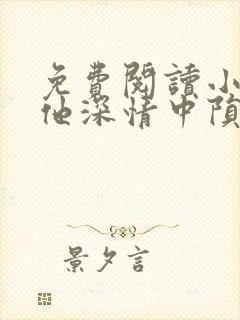 免費閱讀小
他深情中隕
景夕言